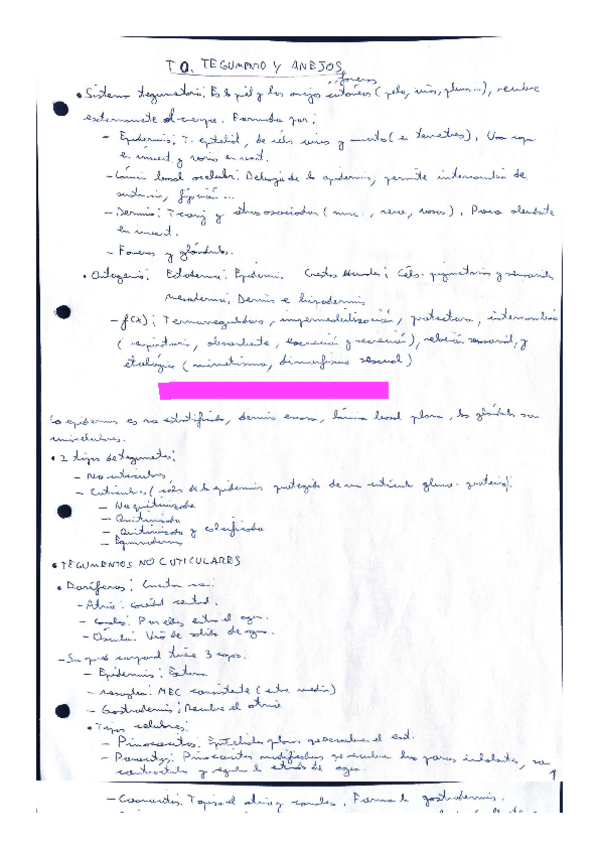 T0. TEGUMENTO Y ANEJOS
faneros
• Sistema tegumentario: Es la piel y los anejos cutáneos (pelo, uñas, plumas...), recubre
externamente el cuerpo. Formada por:
- Epidermis: T. epitelial, de céls vivas y muertas (en terrestres). Una capa
en invert. y varias en vert.
- Lámina basal acelular: Debajo de la epidermis, permite intercambio de
sustancias, fijación...
- Dermis: T. conj y otros asociados (musc., nerv, vasos). Poco
en invert.
- Faneros y glándulas.
• Ontogenia: Ectodermo: Epidermis. Crestas Neurales: Céls. pigmentarias y sensoriales
Mesodermo: Dermis e hipodermis
- f(x): Termorreguladora, impermeabilización, protectora, intercambio
(respiratoria, absorbente, excreción y secreción), relación sensorial, y
etológica (mimetismo, dimorfismo sexual)
La epidermis es no estratificada, dermis escasa, lámina basal plana, las glándulas son
unicelulares.
• 2 tipos de tegumentos:
- No cuticulares
- Cuticulares (céls de la epidermis protegida de una cutícula gluco-proteica):
- No quitinizada
- Quitinizada
- Quitinizada y calcificada
- Equinodermos
• TEGUMENTOS NO CUTICULARES
• Poríferos: Cuentan con:
- Atrio: Cavidad central.
- Canales: Por ellos entra el agua.
- Ósculo: Vía de salida de agua.
- Su pared corporal tiene 3 capas.
- Epidermis: Externa
- Mesoglea: MEC consistente (entre medias)
- Gastrodermis: Recubre el atrio
• Tipos celulares:
- Pinacocitos: Epiteliales planas que recubren el ext.
- Porocitos: Pinacocitos modificados que recubren los poros inhalantes, se
contraen y regulan la entrada de agua.
1
- Coanocitos: Tapizan el atrio y canales. Forman la gastrodermis.